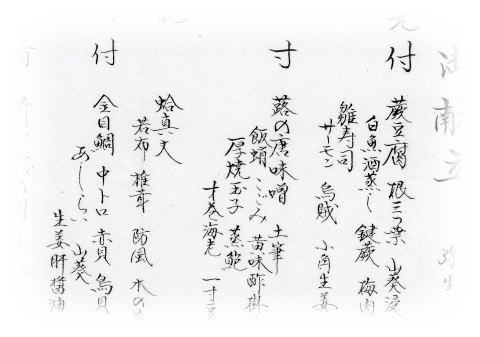 御献立 弥生
先
付 蕨豆腐 根三つ葉 山葵浸
白魚酒蒸し 鍵蕨 梅肉
雛寿司
サーモン 烏賊 小角生姜
寸 蕗の唐味噌 土筆
飯蛸 こごみ 苗味酢掛
厚焼玉子 蒸鮑
才巻海老 一寸豆
蛤真丈
若布 椎茸 防風 木の芽
付 金目鯛 中トロ 赤貝 烏貝
あしらい 山葵
生姜 肝醤油